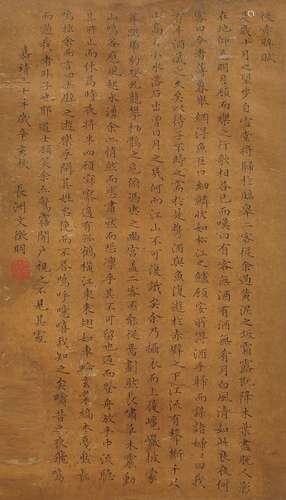 後赤壁賦
是歲十月之望步自雪堂將歸於臨皋二客從余過黃泥之坂霜露既降木葉盡脫人影
在地仰見明月顧而樂之行歌相答已而嘆曰有客無酒有酒無肴月白風清如此良夜何
客曰今者薄暮舉網得魚巨口細鱗狀如松江之鱸顧安所得酒乎歸而謀諸婦婦曰我
有斗酒藏之久矣以待子不時之需於是攜酒與魚復遊於赤壁之下江流有聲斷岸千尺
山高月小水落石出曾日月之幾何而江山不可復識矣余乃攝衣而上履巉巖披蒙
茸踞虎豹登虯龍攀栖鶻之危巢俯馮夷之幽宮蓋二客不能從焉劃然長嘯草木震動
山鳴谷應風起水湧余亦悄然而悲肅然而恐凜乎其不可留也返而登舟放乎中流聽
其所止而休焉時夜將半四顧寂寥適有孤鶴橫江東來翅如車輪玄裳縞衣戛然長
鳴掠余言曰赤壁之遊樂乎問其姓名俛而不答嗚呼噫嘻我知之矣疇昔之夜飛鳴
而過我者非子也耶道士顧笑余亦驚寤開戶視之不見其處
嘉靖三十年歲辛亥秋 長洲文徵明